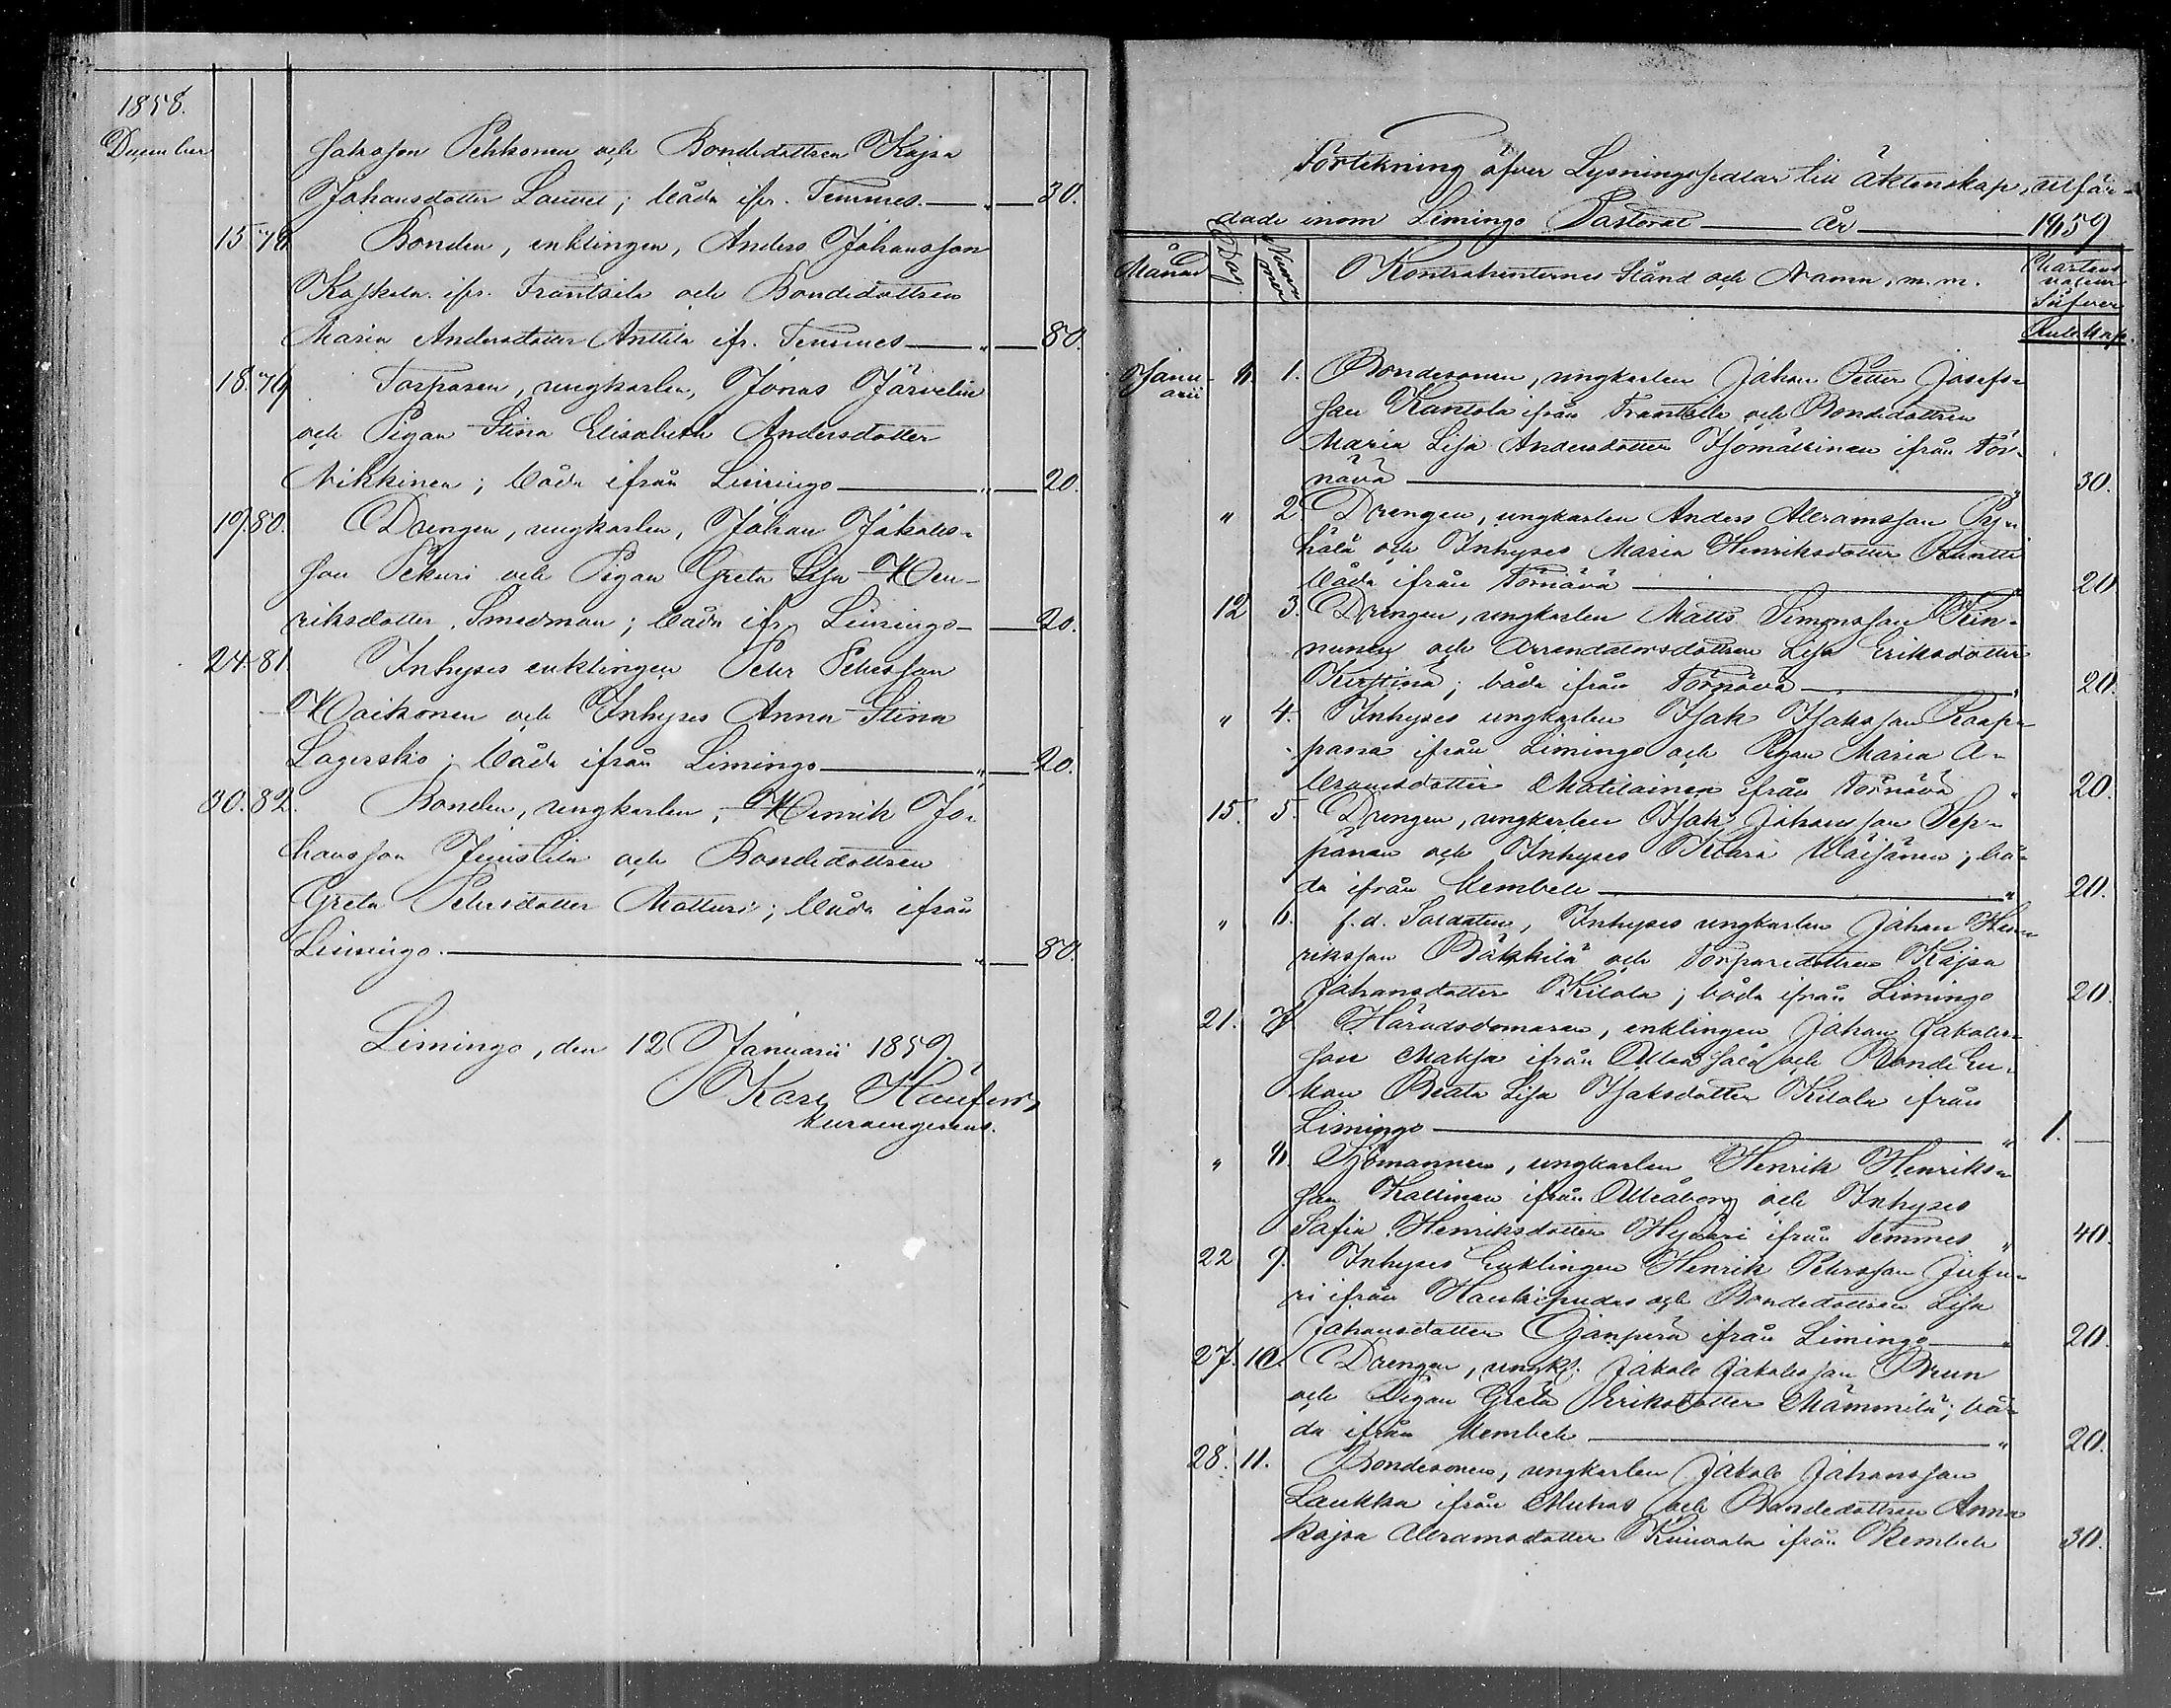 1858.
December
Jakosson Pekkonen och Bondedottren Kajsa
Johansdotter Lauvel; båda ifr. Temmes. — " — 30.
15 78 Bonden, enklingen, Anders Johansson
Kaskela ifr. Frantsila och Bondedottren
Maria Andersdotter Anttila ifr. Temmes — " — 80.
18. 79 Torparen, ungkarlen, Jonas Järvelin
och Pigan Stina Elisabeth Andersdotter
Nikkinen; båda ifrån Limingo — " — 20.
19. 80. Drengen, ungkarlen, Johan Jakobs-
son Pekuri och Pigan Greta Lisa Hen-
riksdotter Smedman; båda ifr. Limingo — 20.
24. 81 Inhyses enklingen Petr Petersson
Haikonen och Inhyses Anna Stina
Lagersko; båda ifrån Limingo — " — 20.
30. 82. Bonden, ungkarlen, Henrik Jo-
hansson Junttila och Bondedottren
Greta Petersdotter Matturi; båda ifrån
Limingo. — " — 80.
Limingo, den 12 Januarii 1859.
Karl
Förtekning öfver Lysningssedlar till äktenskap, utfär-
dade inom Limingo Pastorat — år — 1859
Månad Dag Num mer Kontrahenternes Stånd och Namn, m. m. Chartæ
Silfver
Rub. Kop.
Janu- 8. 1. Bondesonen, ungkarlen Johan Petter Josefs-
arii son Kantola ifrån Frantsila och Bondedottren
Maria Lisa Andersdotter Isomällinen ifrån Tör-
nävä — " 30.
" 2 Drengen, ungkarlen Anders Abramsson Pyy-
kölä och Inhyses Maria Henriksdotter Rantti
båda ifrån Törnävä — " 20
12 3. Drengen, ungkarlen Matts Simonsson Kin-
nunen och Arrendatorsdottren Lisa Eriksdotter
Kurttina; båda ifrån Törnävä — " 20.
" 4. Inhyses ungkarlen Isak Isaksson Raap-
pana ifrån Limingo och Pigan Maria A-
bramsdotter Matilainen ifrån Törnävä " 20.
15. 5. Drengen, ungkarlen Isak Johansson Sep-
pänen och Inhyses Klara Väisänen; bå-
da ifrån Kembele — " 20.
" 6. f. d. Soldaten, Inhyses ungkarlen Johan Hen-
riksson Bäkkilä och Torparedottren Kajsa
Johansdotter Kilola; båda ifrån Limingo 20.
21. 7. Häradsdomaren, enklingen Johan Jakobs-
son Maksa ifrån och Bonde En-
kan Beata Lisa Isaksdotter Kilola ifrån
Limingo — " 1. —
" 8. Sjömannen, ungkarlen Henrik Henriks-
son Kallinen ifrån Uleåborg och Inhyses
Safia Henriksdotter Hyväri ifrån Temmes " 40.
22 9. Inhyses Enklingen Henrik Petersson Juku-
ri ifrån Haukipudas och Bondedottren Lisa
Johansdotter Ojanperä ifrån Limingo — " 20.
27. 10. Drengen, ungk. Jakob Jakobsson Brun
och Pigan Greta Eriksdotter Mämmilä; bå-
da ifrån Kembele — " 20.
28. 11. Bondesonen, ungkarlen Jakob Johansson
Laukka ifrån Muhos och Bondedottren Anna
Kajsa Abramsdotter Kuivala ifrån Kembele 30.